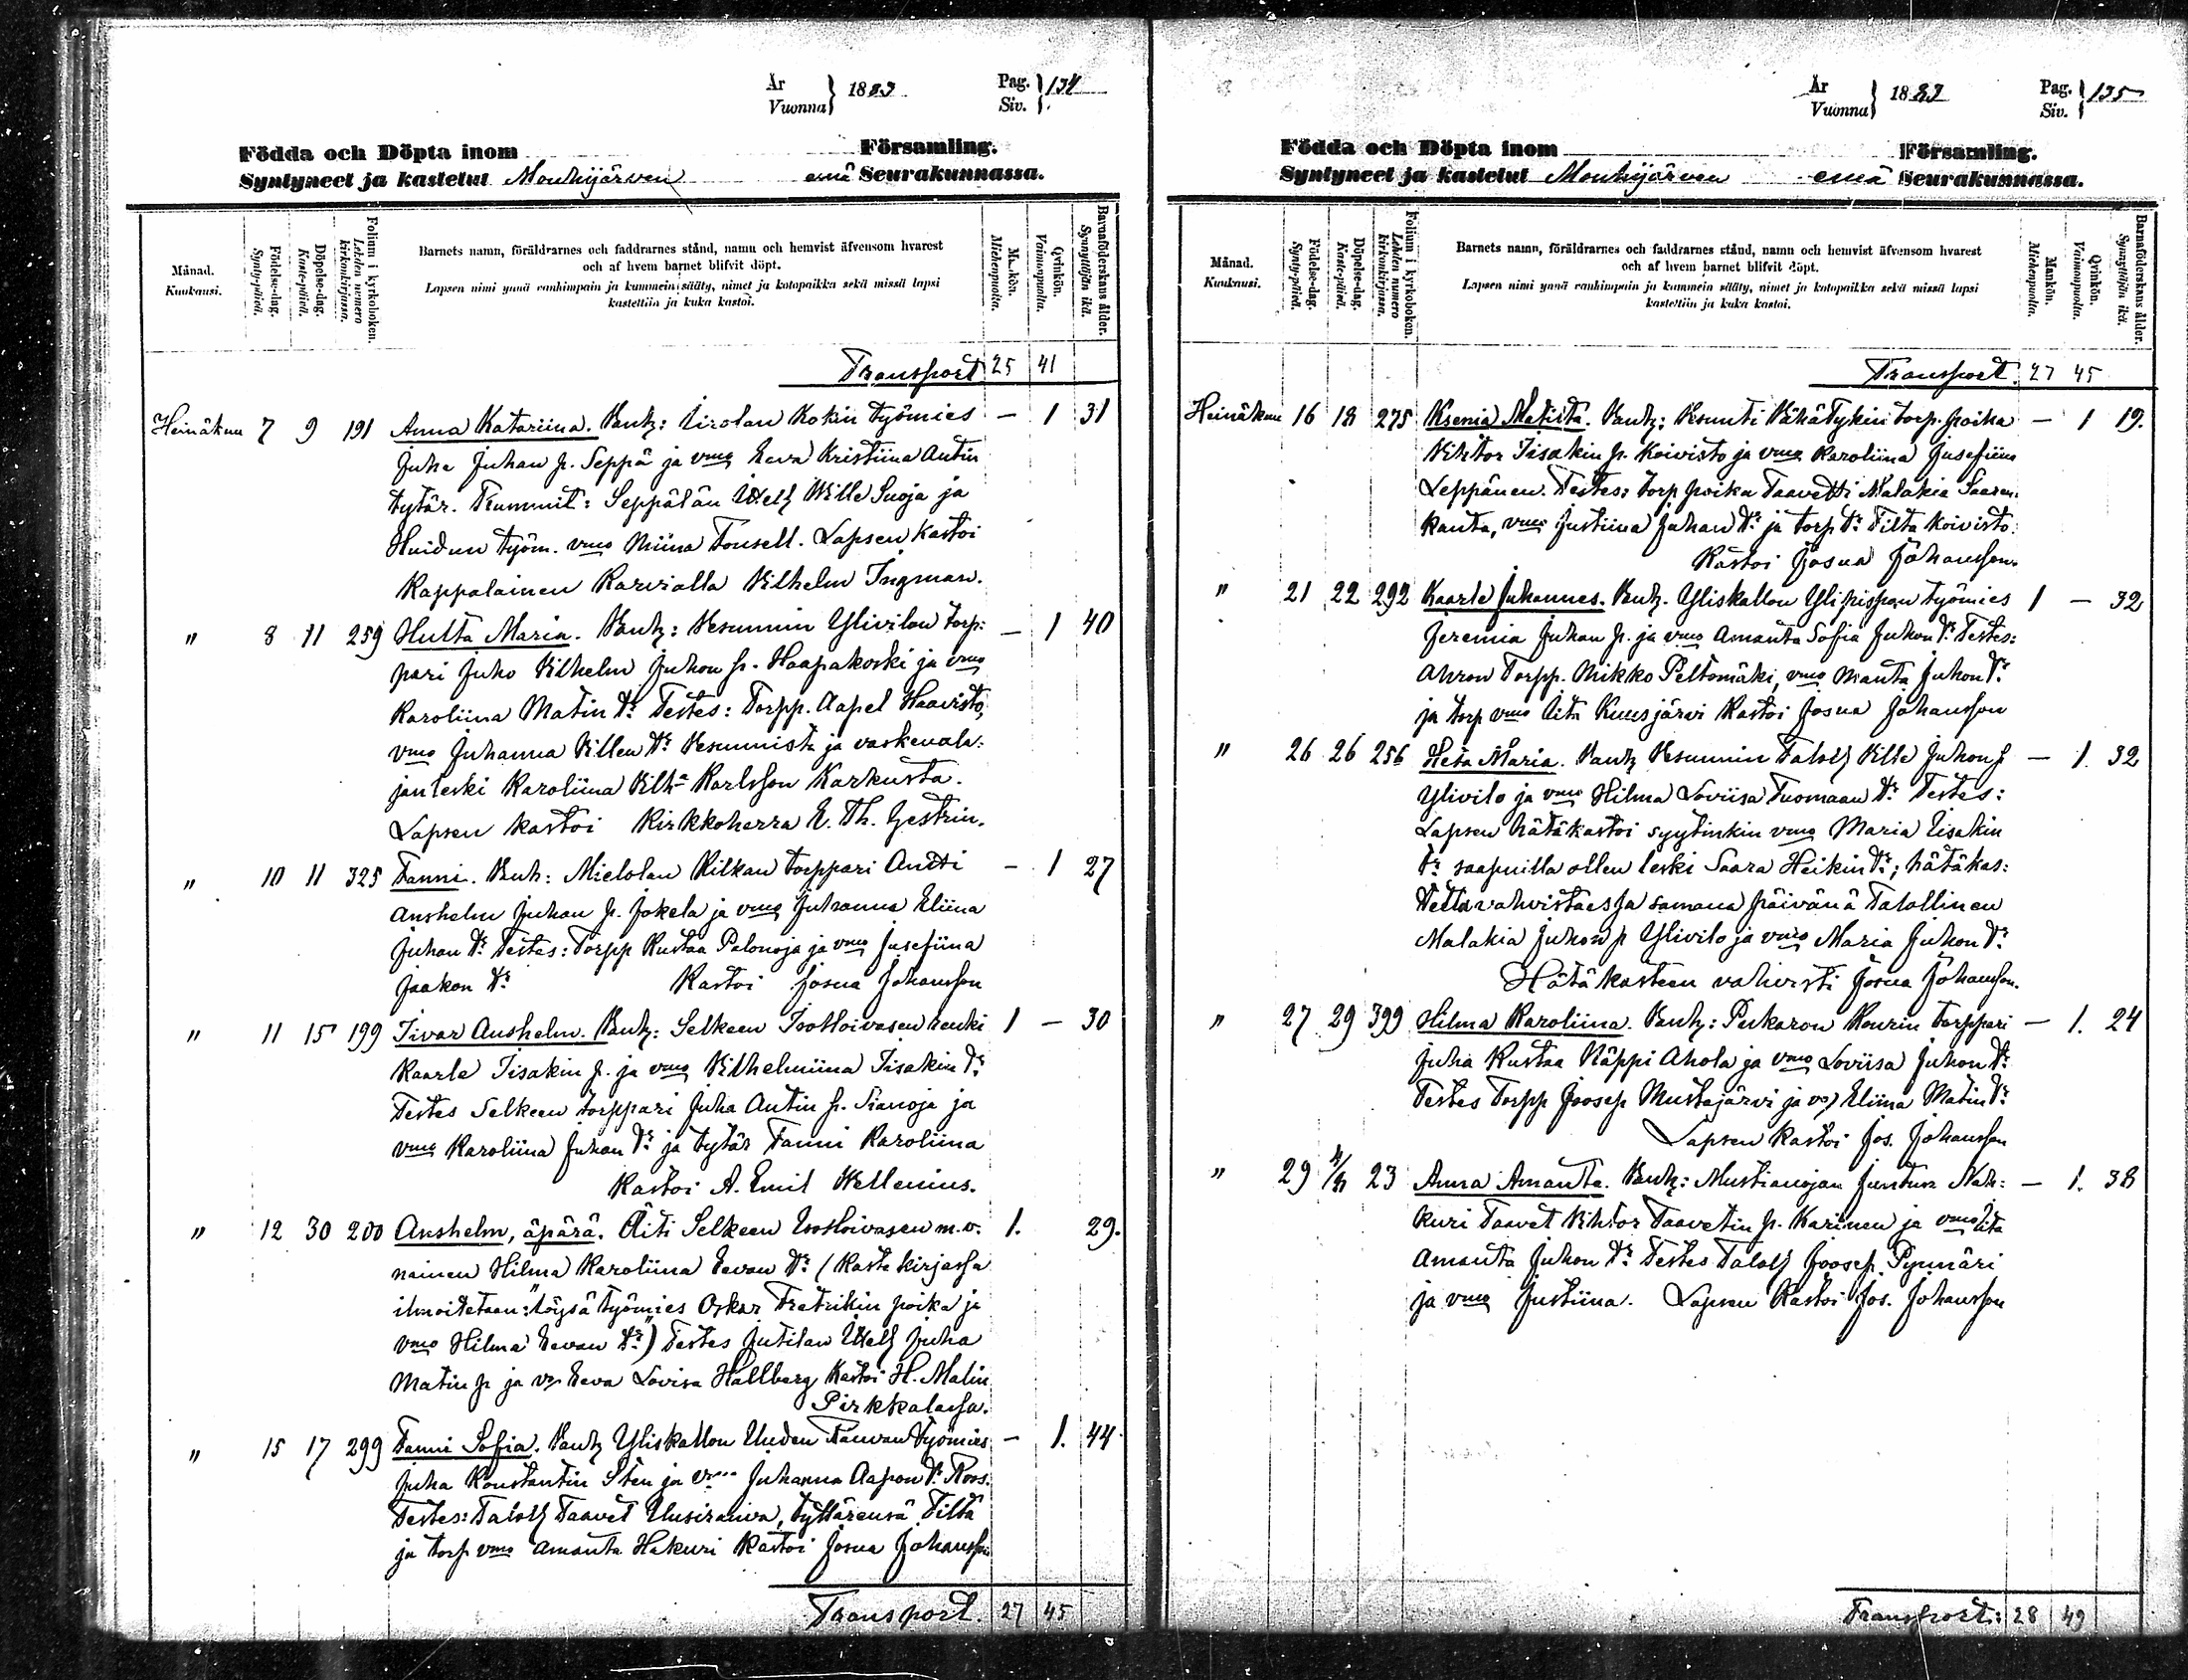 År
Vuonna } 1883.
Pag.
Siv. } 134
Födda och Döpta inom Församling.
Syntyneet ja kastetut Mouhijärven emä Seurakunnassa.
Månad.
Kuukausi.
Födelse-dag.
Synty-päivä.
Döpelse-dag.
Kaste-päivä.
Folium i kyrkoboken.
Lehden numero kirkonkirjassa.
Barnets namn, föräldrarnes och faddrarnes stånd, namn och hemvist äfvensom hvarest
och af hvem barnet blifvit döpt.
Lapsen nimi ynnä vanhimpain ja kummein sääty, nimet ja kotopaikka sekä missä lapsi
kastettiin ja kuka kastoi.
Mankön.
Miehenpuolta.
Qvinkön.
Vaimonpuolta.
Barnaföderskans ålder.
Synnyttäjän ikä.
Transport 25 41
Heinäkuu 7 9 191 Anna Katariina. Vanh: Kokin työmies — 1 31
Juha Juhan p. Seppä ja vmo Eeva Kristiina Antin
tytär. Kummit: Seppälän Wille Suoja ja
työm. vmo Miina Fonsell. Lapsen kastoi
Kappalainen Karvialla Vilhelm Ingman.
" 8 11 259 Hulta Maria. Vanh: Vesunnin Ylivilon torp: — 1 40
pari Juho Vilhelm Juhon p. Haapakoski ja vmo
Karoliina Matin tr. Testes: Torpp. Aapel Haavisto,
vmo Juhanna Villen tr. Vesunnista ja vaskenvala:
jan leski Karoliina Karlsson Karkusta.
Lapsen kastoi Kirkkoherra K. Th. Gestrin.
" 10 11 325 Fanni. Vanh: Mielolan Kilkan torppari Antti — 1 27
Anshelm Juhan p. Jokela ja vmo Juhanna Eliina
Juhan tr. Testes: Torpp Kustaa Palonoja ja vmo Josefiina
Jaakon tr. Kastoi Josua Johansson
" 11 15 199 Iivar Anshelm. Vanh: Selkeen IsoHoivasen renki 1 — 30
Kaarle Iisakin p. ja vmo Vilhelmiina Iisakin tr.
Testes Selkeen torppari Juha Antin p. Sianoja ja
vmo Karoliina Juhan tr. ja tytär Fanni Karoliina
Kastoi A. Emil Wellenius.
" 12 30 200 Anshelm, äpärä. Äiti Selkeen IsoHoivasen m.v. 1. 29.
nainen Hilma Karoliina Eevan tr. (Kaste kirjassa
ilmoitetaan: "löysä työmies Oskar Fretrikin poika ja
vmo Hilma Eevan tr.") Testes Jutilan Juha
Matin p ja vo Eeva Lovisa Hallberg Kastoi H. Malin
Pirkkalassa.
" 15 17 299 Fanni Sofia. Vanh Yliskallon Uuden Rauvan työmies — 1. 44
Juha Konstantin Sten ja vmo Juhanna Aapon tr. Roos.
Testes: Taloll Taavet Uusirauva, tyttärensä Tilta
ja torp vmo Amanta Hakuri Kastoi Josua Johansson
Transport. 27 45
År
Vuonna } 1883
Pag.
Siv. } 135
Födda och Döpta inom Församling.
Syntyneet ja kastetut Mouhijärven emä Seurakunnassa.
Månad.
Kuukausi.
Födelse-dag.
Synty-päivä.
Döpelse-dag.
Kaste-päivä.
Folium i kyrkoboken.
Lehden numero kirkonkirjassa.
Barnets namn, föräldrarnes och faddrarnes stånd, namn och hemvist äfvensom hvarest
och af hvem barnet blifvit döpt.
Lapsen nimi ynnä vanhimpain ja kummein sääty, nimet ja kotopaikka sekä missä lapsi
kastettiin ja kuka kastoi.
Mankön.
Miehenpuolta.
Qvinkön.
Vaimonpuolta.
Barnaföderskans ålder.
Synnyttäjän ikä.
Transport. 27 45
Heinäkuu 16 18 275 Ksenia Matista. Vanh: Vesunti VähäTykin torp. poika — 1 19.
Vihtor Iisakin p. Koivisto ja vmo Karoliina Josefiina
Leppänen. Testes: torp poika Taavetti Malakia Saaren:
kanta, vmo Justiina Juhan tr. ja torp tr. Tilta Koivisto.
Kastoi Josua Johansson.
" 21 22 292 Kaarle Juhannes. Vanh. Yliskallon Ylipispan työmies 1 — 32
Jeremia Juhan p. ja vmo Amanta Sofia Juhon tr. Testes:
Ahron Torpp. Mikko Peltomäki, vmo Manta Juhon tr.
ja torp vmo Iita Kuusjärvi Kastoi Josua Johansson
" 26 26 256 Heta Maria. Vanh Vesunnin Taloll Ville Juhon p — 1. 32
Ylivilo ja vmo Hilma Loviisa Tuomaan tr. Testes:
Lapsen hätäkastoi syytinkin vmo Maria Iisakin
tr. saapuilla ollen leski Saara Heikin tr.; hätäkas:
tetta vahvistaessa samana päivänä Talollinen
Malakia Juhon p Ylivilo ja vmo Maria Juhon tr.
Hätäkasteen vahvisti Josua Johansson.
" 27 29 399 Hilma Karoliina. Vanh: Pukaron Kourin torppari — 1. 24
Juha Kustaa Näppi Ahola ja vmo Loviisa Juhon tr.
Testes Torpp Joosep Mustajärvi ja vo) Eliina Matin tr.
Lapsen kastoi Jos. Johansson
" 29 23 Anna Amanta. Vanh: Mustianojan Juntun Nah: — 1. 38
kuri Taavet Vihtor Taavetin p. Karinen ja vmo Iita
Amanta Juhon tr. Testes Taloll Joosep Pynnäri
ja vmo Justiina. Lapsen Kastoi Jos. Johansson
Transport: 28 49